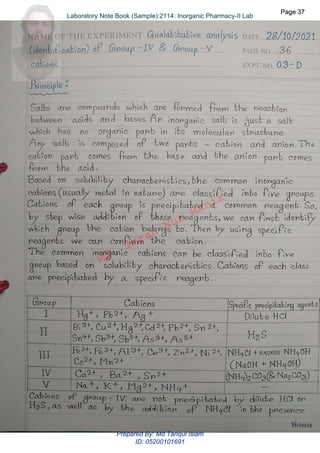 Page 37
Laboratory Note Book (Sample):2114: Inorganic Pharmacy-II Lab
NAME OF THE EXPERIMENT Qualatitative analysis DATE 28/10/2021
(identification) of Group - IV & Group - V PAGE NO. 36
cations EXPT. NO. 03-D
Principle :
Salts are compounds which are formed from the reaction
between acids and bases. An inorganic salt is just a salt
which has no organic part in its molecular structure.
Any salt is composed of two parts - cation and anion. The
cation part comes from the base and the anion part comes
from the acid.
Based on solubility characteristics, the common inorganic
cations (usually metal in nature) are classified into five groups.
Cations of each group is precipitated common reagent. So,
by step wise addition of these reagents, we can first identify
which group the cation belongs to. Then by using specific
reagents we can confirm the cation.
The common inorganic cations can be classified into five
group based on solubility characteristics. Cations of each class
are precipitated by a specific reagent.
Group Cations Specific precipitating agents
I Hg+, Pb2+, Ag+ Dilute HCl
II Bi3+, Cu2+, Hg2+, Cd2+, Pb2+, Sn2+,
Sn4+, Sb3+, Sb5+, As3+, As5+ H2S
III Fe2+, Fe3+, Al3+, Cr3+, Zn2+, Ni2+,
Co2+, Mn2+ NH4Cl + excess NH4OH
(NaOH + NH4OH)
IV Ca2+, Ba2+, Sn2+ (NH4)2CO3(& Na2CO3)
V Na+, K+, Mg2+, NH4+ —
Cations of group - IV are not precipitated by dilute HCl or
H2S, as well as by the addition of NH4Cl in the presence
Victoria
Prepared By: Md Tariqul Islam
ID: 05200101691